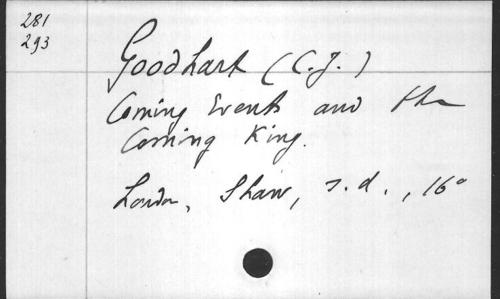 281
293
Goodhart (C.J.)
Coming Events and the
Coming King.
London, Shaw, s.d., 16°